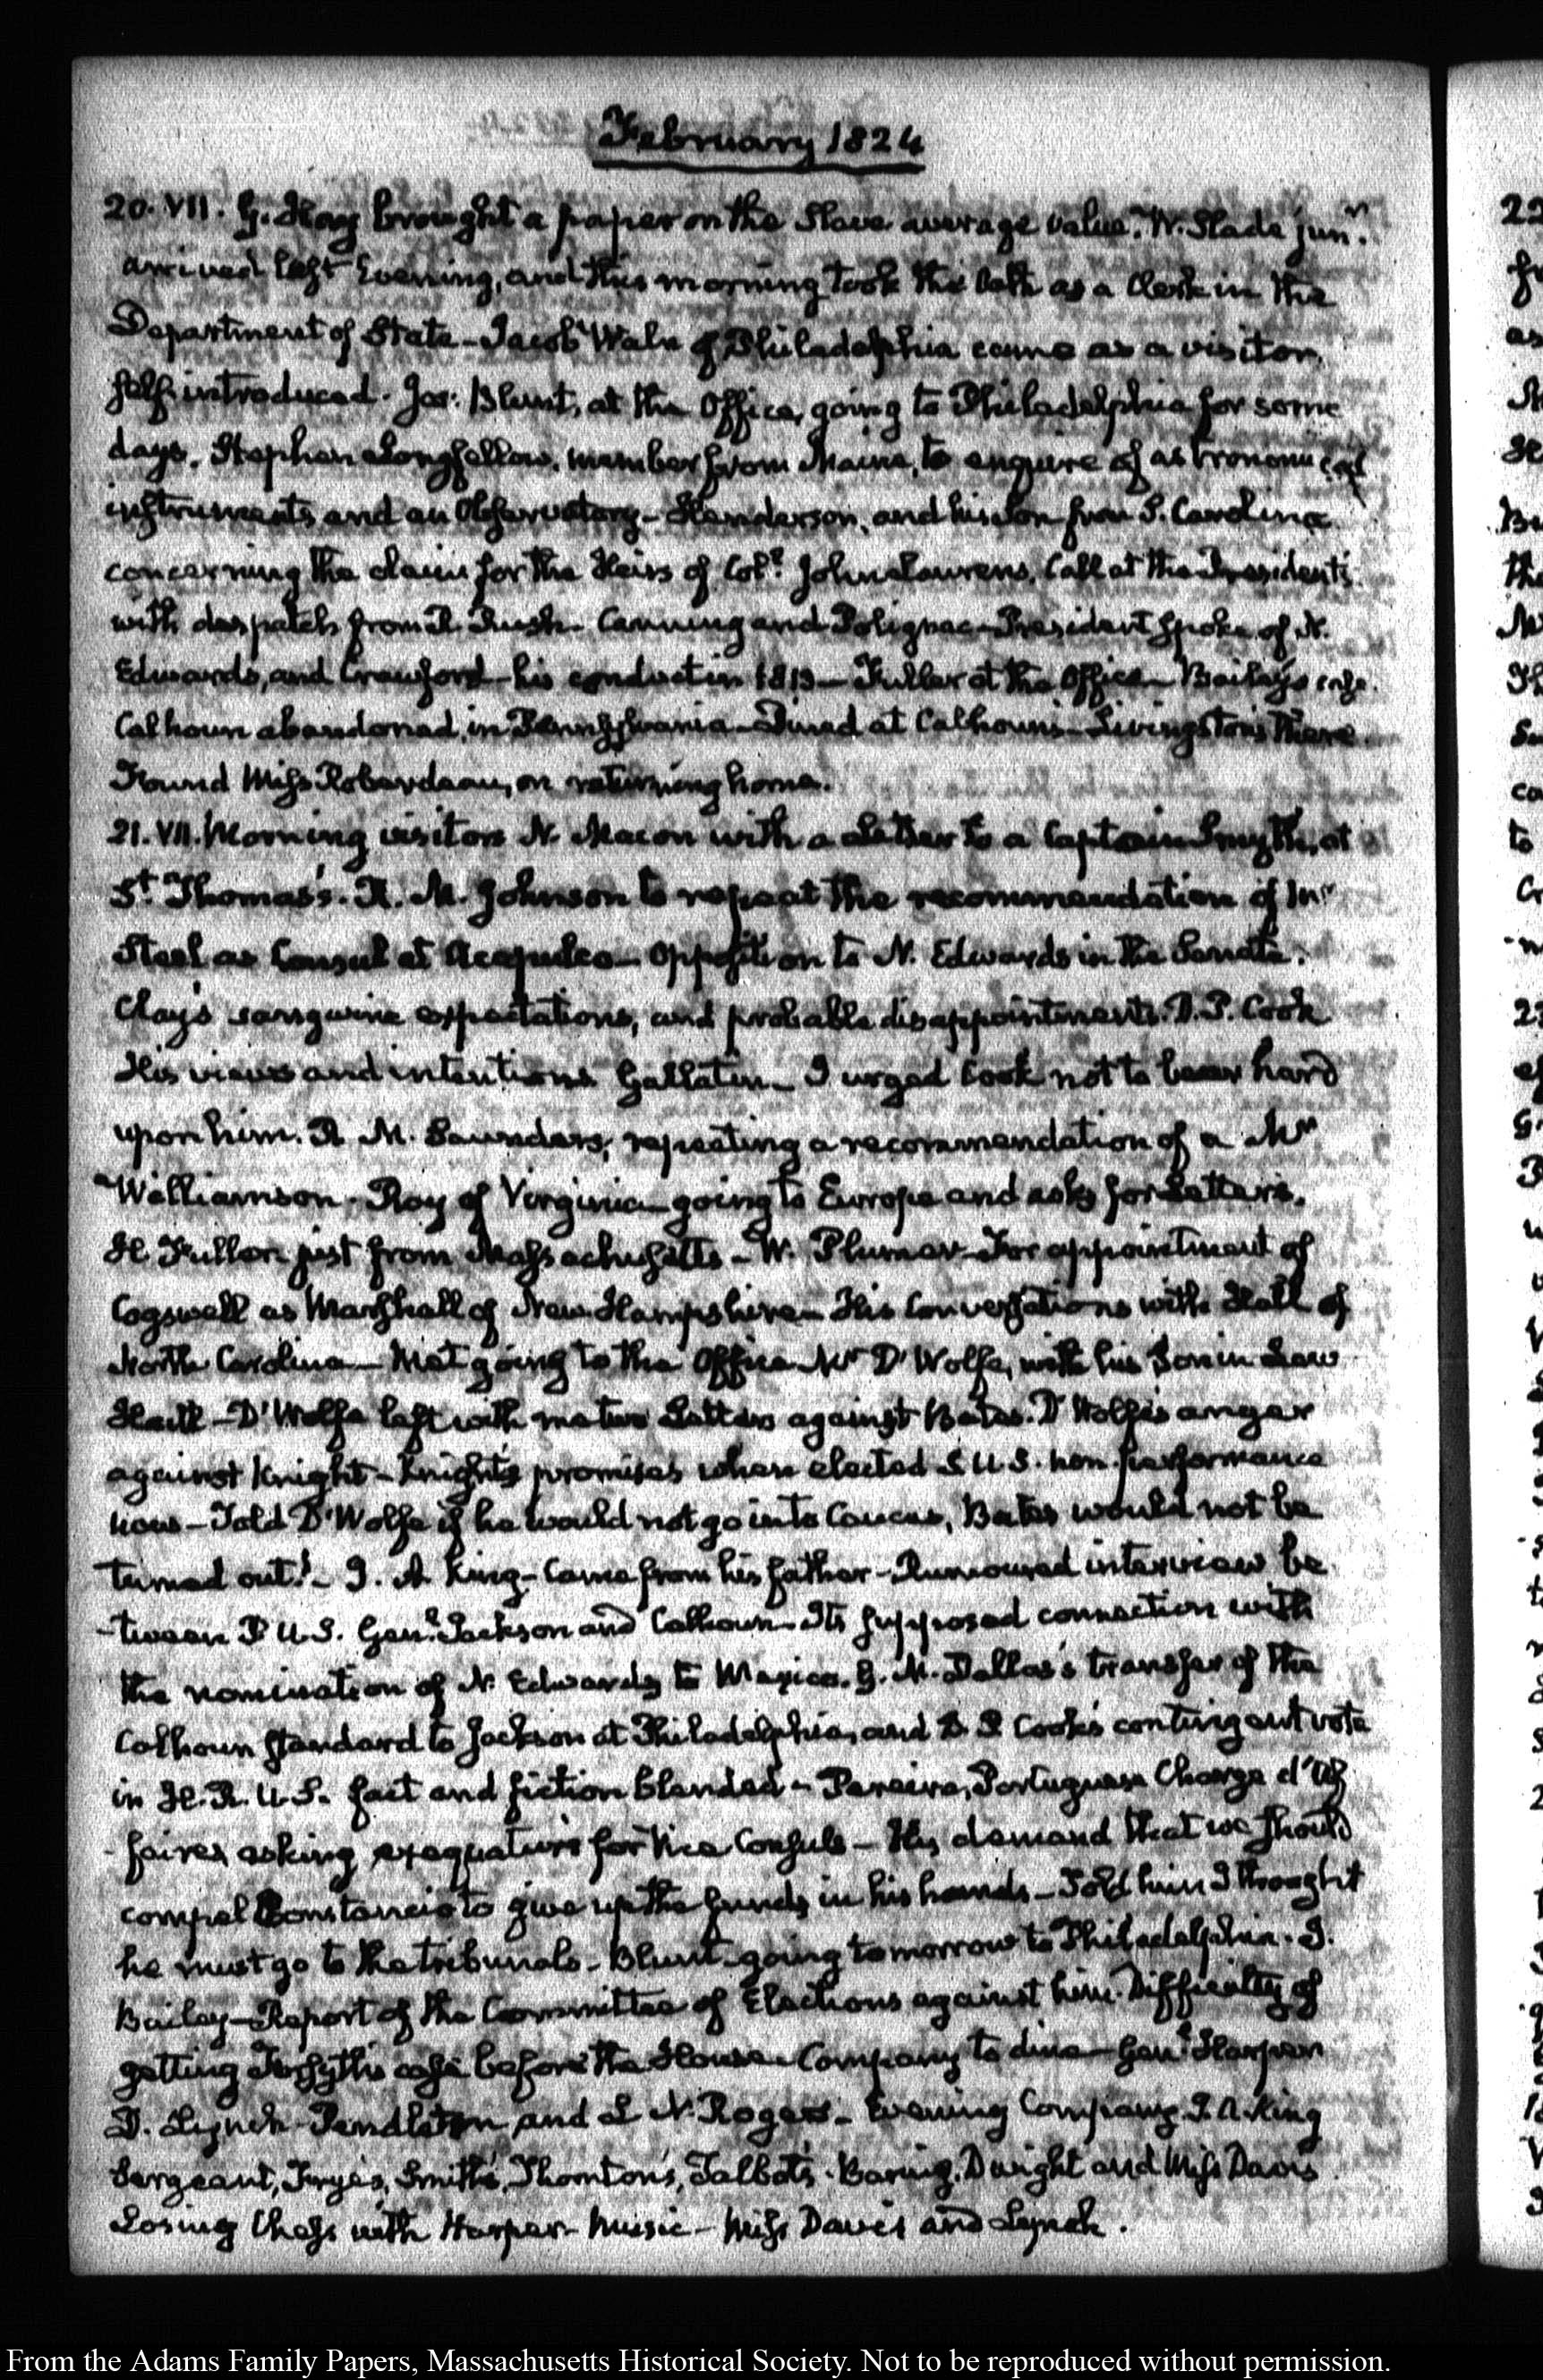 February 1824
20. VII. G. Hay brought a paper on the Slave average value. W. Slade junr.
arrived last Evening, and this morning took the Oath as a Clerk in the
Department of State - Jacob Waln of Philadelphia came as a visitor
self-introduced. Jos: Blunt, at the Office, going to Philadelphia for some
days. Stephen Longfellow, member from Maine, to enquire of astronomical
instruments and an Observatory - Henderson, and his Son from S. Carolina
concerning the claim for the Heirs of Coll. John Laurens. Call at the President's
with despatch from R. Rush - Canning and Polignac - President spoke of N.
Edwards, and Crawford - his conduct in 1813 - Fuller at the Office - Bailey's case.
Calhoun abandoned in Pennsylvania - Dined at Calhoun's - Livingston's there
Found Miss Roberdeau, on returning home.
21. VII. Morning visitors N. Macon with a Letter to a Captain Smyth, at
St. Thomas's. R. M. Johnson to repeat the recommendation of Mr
Steel as Consul at Acapulco - Opposition to N. Edwards in the Senate.
Clay's sanguine expectations, and probable disappointments. D. P. Cook
His views and intentions Gallatin - I urged Cook not to bear hard
upon him. R. M. Saunders, repeating a recommendation of a Mr
Williamson - Roy of Virginia - going to Europe and asks for Letters.
H Fuller just from Massachusetts - W. Plumer - For appointment of
Cogswell as Marshall of New-Hampshire - His Conversations with Hall of
North Carolina - Met going to the Office Mr D'Wolfe, with his Son in Law
D'Wolfe left with me two Letters against Bates. D'Wolfe's anger
against Knight - Knight's promises when elected S. U.S. non-performance
now - Told D'Wolfe if he would not go into Caucus, Bates would not be
turned out! - J. A King - Came from his father - Rumoured interview be
-tween P. U.S. Genl. Jackson and Calhoun - Its supposed connection with
the nomination of N. Edwards to Mexico. G. M. Dallas's transfer of the
Calhoun standard to Jackson at Philadelphia, and D. P. Cook's contingent vote
in H. R. U.S. fact and fiction blended - Pereira, Portuguese Charge d'Af
-faires asking exequaturs for Vice Consuls - His demand that we should
compel Constancio to give up the funds in his hands - Told him I thought
he must go to the tribunals - Blunt - going tomorrow to Philadelphia. J.
Bailey - Report of the Committee of Elections against him. Difficulty of
getting Forsyth's case before the House - Company to dine - Genl. Harper
D. Lynch - Pendleton and L N. Rogers - Evening Company J. A. King
Sergeant, Frye's, Smith's, Thornton's, Talbot's. Baring. Dwight and Miss Davis
Losing Chess with Harper - Music - Miss Davis and Lynch.
From the Adams Family Papers, Massachusetts Historical Society. Not to be reproduced without permission.